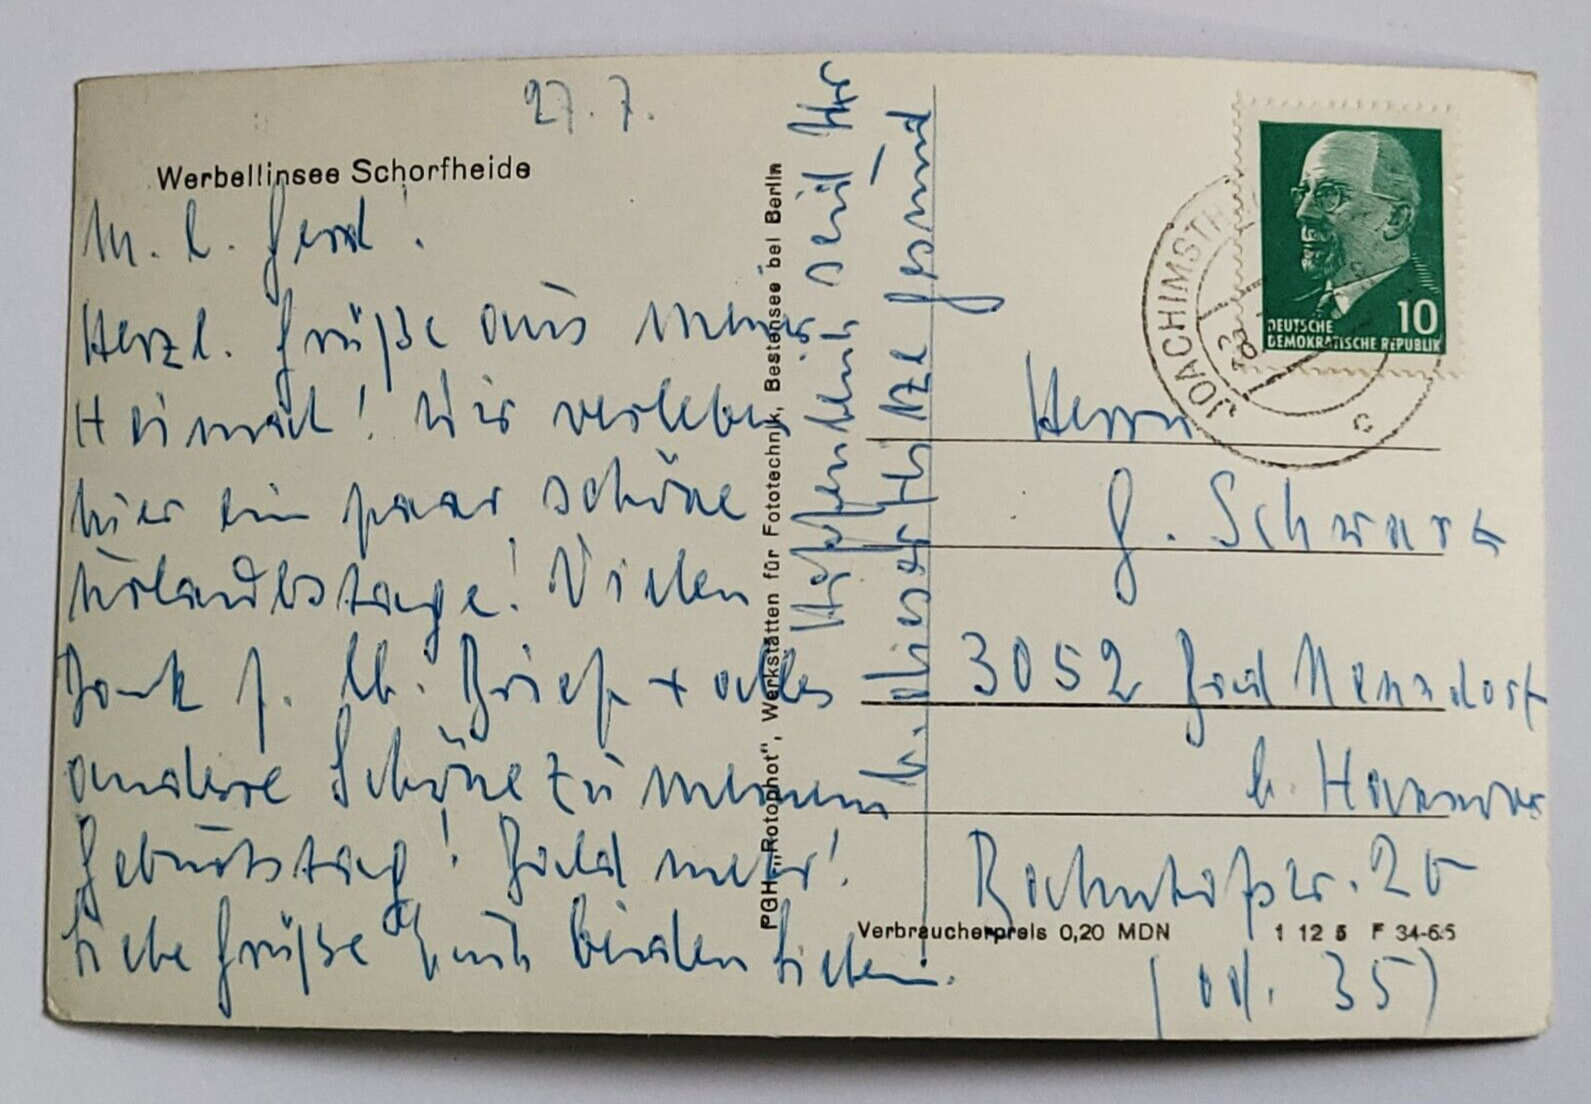 27.7.
Werbellinsee Schorfheide
M. l. Gerd!
Herzl. Grüße aus meiner
Heimat! Wir verleben
hier ein paar schöne
Urlaubstage! Vielen
Dank f. lb. Brief + alles
andere Schöne zu meinem
Geburtstag! Bald mehr!
Liebe Grüße Euch beiden Lieben.
Hoffentlich seid Ihr
b. dieser Hitze gesund
PGH „Rotophot“, Werkstätten für Fototechnik, Bestensee bei Berlin
JOACHIMSTH
10
DEUTSCHE
DEMOKRATISCHE REPUBLIK
c
Herrn
G. Schwarz
3052 Bad Nenndorf
b. Hannover
Bahnhofstr. 20
(od. 35)
Verbraucherpreis 0,20 MDN
1 12 5 F 34-65